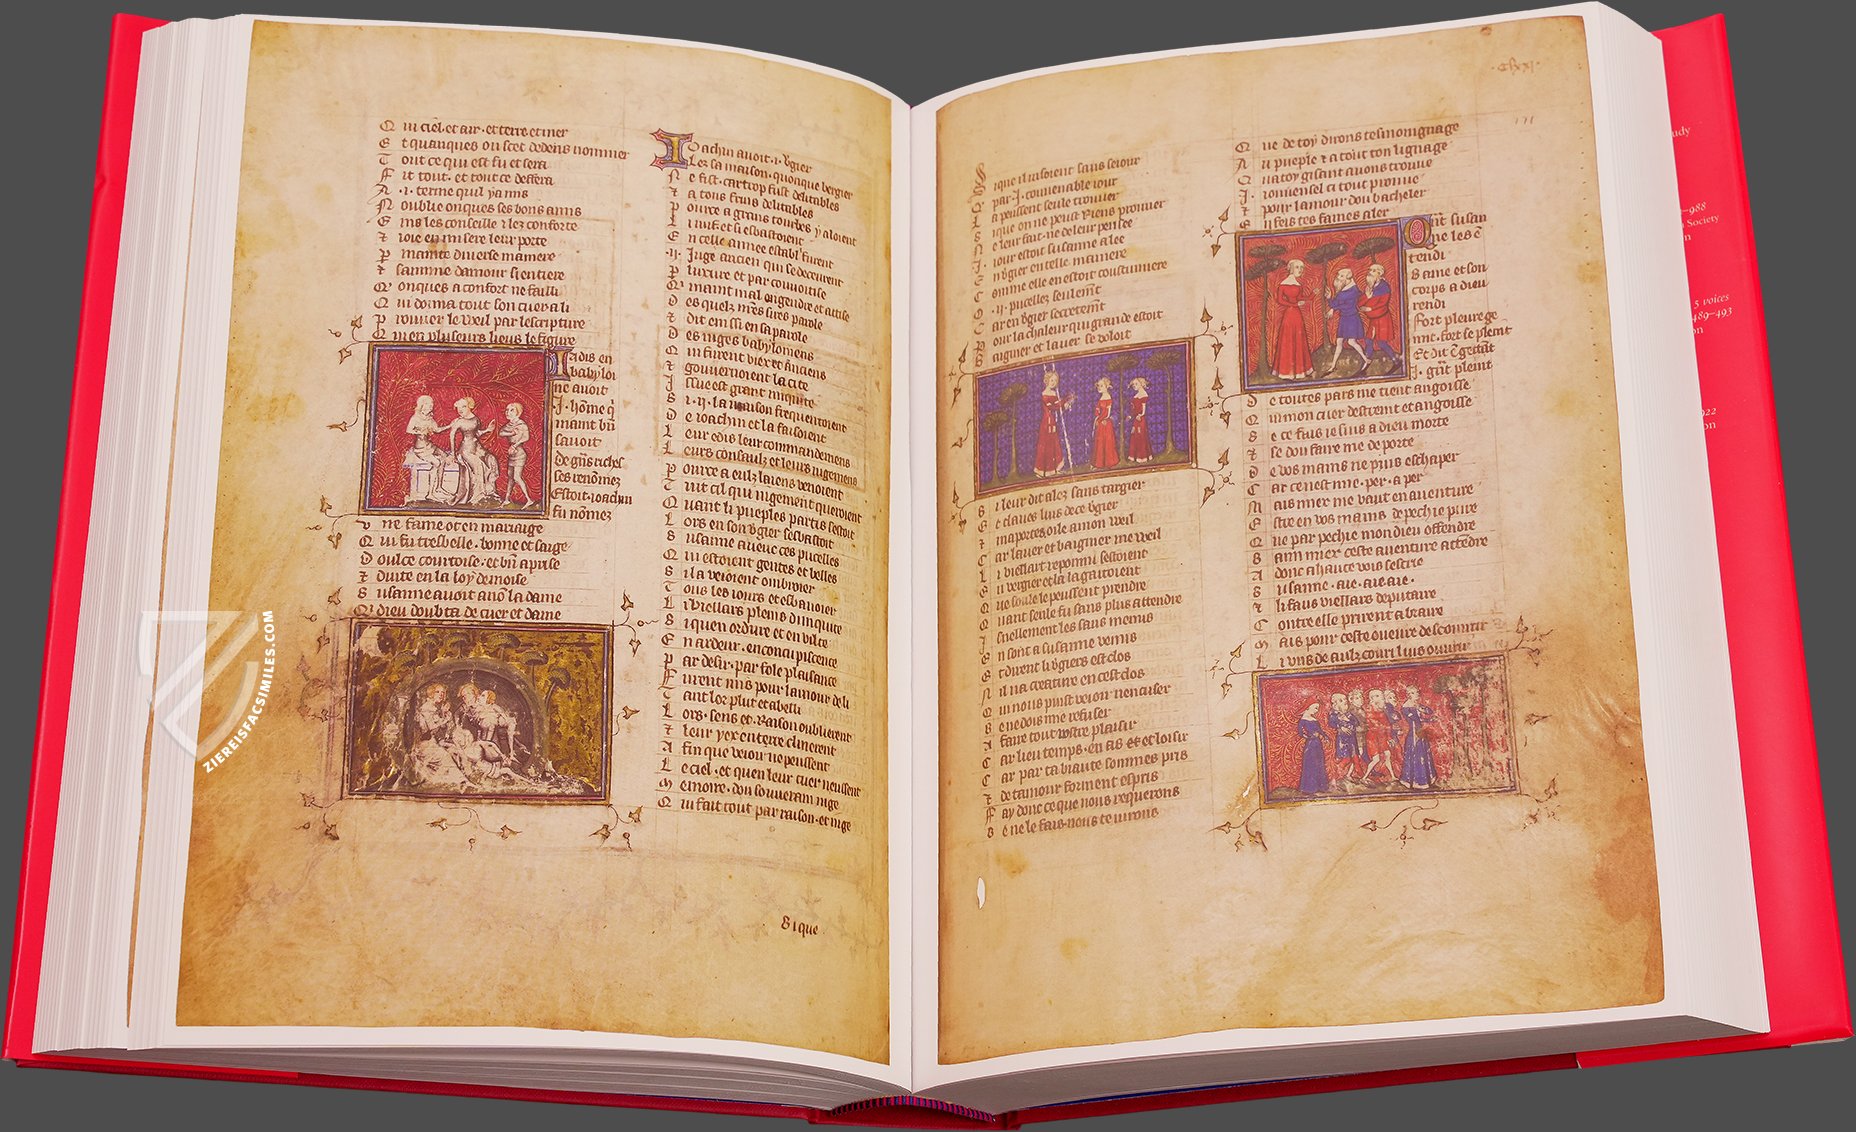 Qui ciel et air et terre et mer
Et quanques on scet dedens nommer
Tout ce qui est fu et sera
Fit tout et tout ce deffera
A .i. terme quil ya mis
Noublie onques ses bons amis
Eins les conseille et les conforte
Et ioie en misere leur porte
Par mainte diverse maniere
Et samme damour si entiere
Quonques a confort ne failli
Qui donna tout son cuer a li
Prouver le veil par lescripture
Qui en plusieurs lieus le figure
Iadis en
babyloi
ne avoit
.i. home q
maint bn
savoit
De gns riches
ses renomez
Estoit ioachin
fu nomez
Une fame ot en mariaige
Qui fu tresbelle bonne et saige
Doulce courtoise et bn aprise
Et duite en la loy de moise
Susanne avoit a no la dame
Q dieu doubta de cuer et dame
Ioachin avoit .i. vgier
Lez sa maison quonque bergier
Ne fist car trop fust delitables
Et a tous fruis delitables
Pource a grans tourbes y aloient
Li iuif et si esbastoient
En celle annee establi furent
.ii. Iuge ancien qui se decurent
Par luxure et par couvoitise
Qui maint mal engendre et attise
Des quelz nres sires parole
Et dit einssi en sa parole
Des iuges babyloniens
Qui furent viex et anciens
Et gouvernoient la cite
Issue est grant iniquite
S .i. .ii. la maison frequentoient
De ioachin et la faisoient
Leur edis leur commandemens
Leurs consaulz et leurs iugemens
Pource a eulz laiens venoient
Tuit cil qui iugement queroient
Quant li pueples partis sestoit
Lors en son vgier sesbastoit
Susanne avuec ces pucelles
Qui estoient gentes et belles
Si la veioient ombroier
Tous les iours et esbanoier
Li viellars pleins diniquite
Si quen ordure et en vilte
En ardeur en concupiscence
Par desir par fole plaisance
Furent mis pour lamour de li
Tant lor plut et abelli
Lors sens et Raison oublierent
Et leur yex en terre clinerent
Afin que veioir ne peussent
Le ciel et quen leur cuer neussent
Memoire dou souverain iuge
Qui fait tout par raison et iuge
Sique
.Clxxi.
171
Si que il visoient sans seiour
Q par .i. convenable iour
La peussent seule trouver
Si que on ne peust Riens prouver
Ne leur fait ne de leur pensee
.I. iour estoit susanne alee
En vgier en celle maniere
Comme elle en estoit coustumiere
O .ii. pucellez seulemt
Car en vgier secretemt
Pour la chaleur qui grande estoit
Baigner et laver se voloit
Si leur dit alez sans targier
Et claues luis de ce vgier
Et maportes oile a mon veil
Car laver et baigner me veil
Li viellart reponnu sestoient
En vergier et la la gaitoient
Que seule le peussent prendre
Quant seule fu sans plus attendre
Isnellement les sans menus
En sont a susanne venus
Et dirent li vgiers est clos
Nil na creature en cest clos
Qui nous puist veoir nencuser
Se ne dois me refuser
A faire tout nostre plaisir
Car lieu temps en as et et loisir
Car par ta biaute sommes pris
Et de tamour forment espris
Fay donc ce que nous requerons
Se ne le fais nous te iurons
Que de toy dirons tesmoingnage
Au pueple et a tout ton lignage
Qua toy gisant avons trouve
.I. iouvensel ci tout prouve
Et pour lamour dou bacheler
En feis tes fames aler
Qnt susan
ne les e
tendi
Same et son
corps a dieu
rendi
Fort pleure ge
mt fort se pleint
Et dit e getat
.i. gnt pleint
De toutes pars me tient angoisse
Qui mon cuer destreint et angoisse
Se ce fais ie suis a dieu morte
Et se dou faire me deporte
De vos mains ne puis eschaper
Car ce nest mie per a per
Mais miex me vaut en aventure
Estre en vos mains de pechie pure
Que par pechie mon dieu offendre
Saim miex ceste aventure attendre
A donc a haute vois sescrie
Susanne aie aie aie
Et li faus viellars deputaire
Contre elle prirent a braire
Mais pour ceste oueure descouvrir
Li uns de eulz couri luis ouvrir
udy
-988
Society
on
5 voices
489-493
on
922
on
ZIEREISFACSIMILES.COM